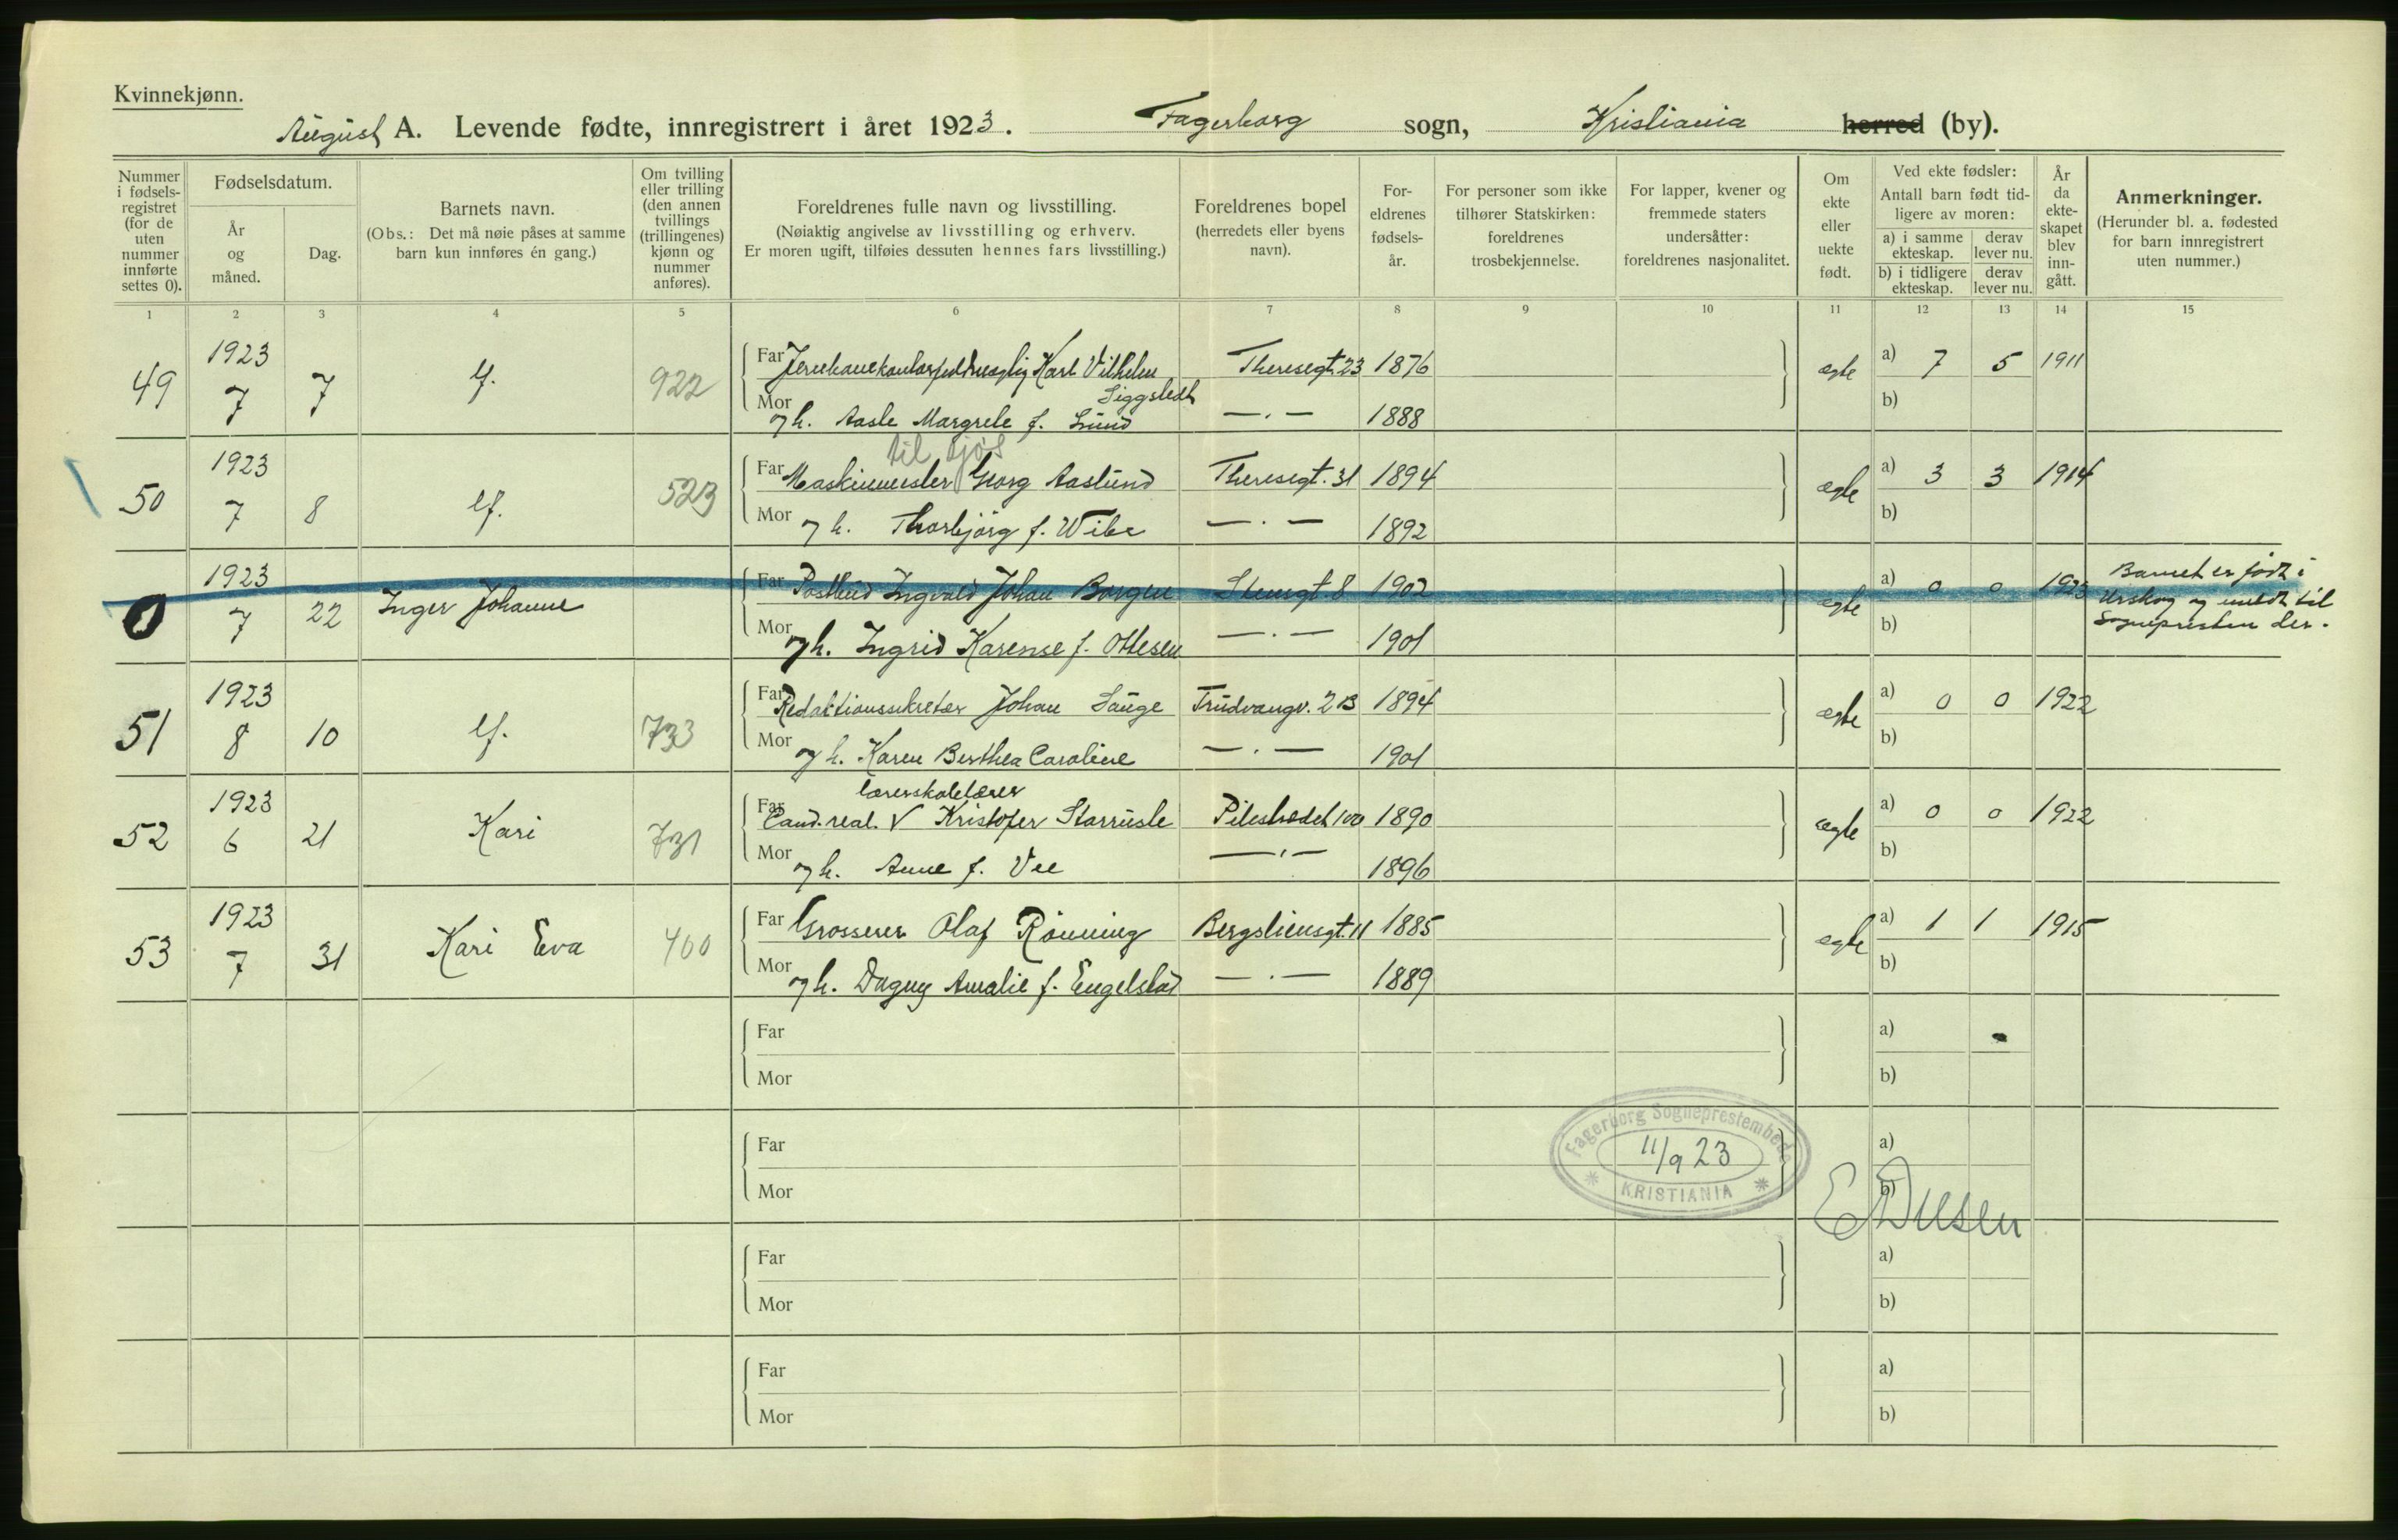 Kvinnekjønn.
August A. Levende fødte, innregistrert i året 1923. Fagerborg sogn, Kristiania herred (by).
Nummer i fødsels-registret (for de uten nummer innførte settes 0).
Fødselsdatum.
År og måned.
Dag.
Barnets navn.
(Obs.: Det må nøie påses at samme barn kun innføres én gang.)
Om tvilling eller trilling (den annen tvillings (trillingenes) kjønn og nummer anføres).
Foreldrenes fulle navn og livsstilling.
(Nøiaktig angivelse av livsstilling og erhverv.
Er moren ugift, tilføies dessuten hennes fars livsstilling.)
Foreldrenes bopel (herredets eller byens navn).
For-eldrenes fødsels-år.
For personer som ikke tilhører Statskirken: foreldrenes trosbekjennelse.
For lapper, kvener og fremmede staters undersåtter: foreldrenes nasjonalitet.
Om ekte eller uekte født.
Ved ekte fødsler:
Antall barn født tid-ligere av moren:
a) i samme ekteskap.
derav lever nu.
b) i tidligere ekteskap.
derav lever nu.
År da ekte-skapet blev inn-gått.
Anmerkninger.
(Herunder bl. a. fødested for barn innregistrert uten nummer.)
1 2 3 4 5 6 7 8 9 10 11 12 13 14 15
49 1923 7 7 lf. 922 Far Karl Vilhelm Siggstedt Theresegt. 23 1876 ægte a) 7 5 1911
Mor og h. Aasle Margrete f. Lund —.— 1888 b)
til sjøs
50 1923 7 8 lf. 523 Far Maskinmester Georg Aaslund Theresegt. 31 1894 ægte a) 3 3 1914
Mor og h. Thorbjörg f. Wibe —.— 1892 b)
0 1923 7 22 Inger Johanne Far Postbud Ingvald Johan Borgen Stensgt. 8 1902 ægte a) 0 0 1923 Barnet er født i Urskog og meldt til Sognepresten der.
Mor og h. Ingrid Karense f. Ottesen —.— 1901 b)
51 1923 8 10 lf. 733 Far Redaktionssekretær Johan Sauge Trudvangv. 2 B 1894 ægte a) 0 0 1922
Mor og h. Karen Berthea Caroline —.— 1901 b)
lærerskolelærer
52 1923 6 21 Kari 731 Far Cand. real. V Kristofer Starrusle Pilestrædet 100 1890 ægte a) 0 0 1922
Mor og h. Anne f. Vee —.— 1896 b)
53 1923 7 31 Kari Eva 400 Far Grosserer Olaf Rönning Bergsliensgt. 11 1885 ægte a) 1 1 1915
Mor og h. Dagny Amalie f. Engelstad —.— 1889 b)
Far a)
Mor b)
Far a)
Fagerborg Sogneprestembede
11/9 23
KRISTIANIA
Mor b)
Far a)
Mor b)
Far a)
Mor b)